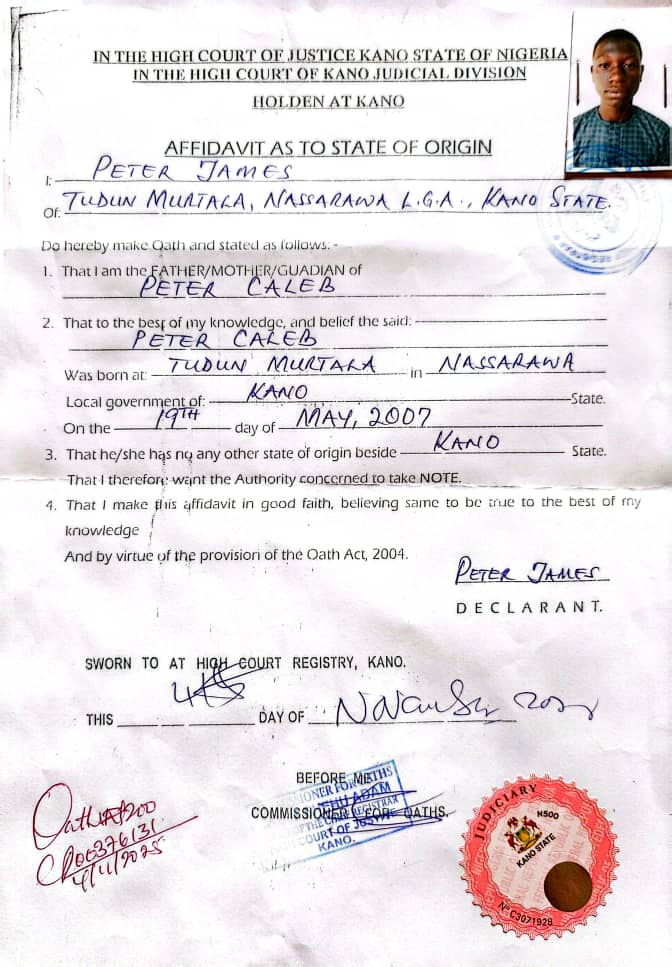 IN THE HIGH COURT OF JUSTICE KANO STATE OF NIGERIA
IN THE HIGH COURT OF KANO JUDICIAL DIVISION
HOLDEN AT KANO
AFFIDAVIT AS TO STATE OF ORIGIN
I: PETER JAMES
Of: TUDUN MURTALA, NASSARAWA L.G.A., KANO STATE.
Do hereby make Oath and stated as follows: -
1. That I am the FATHER/MOTHER/GUADIAN of
PETER CALEB
2. That to the best of my knowledge, and belief the said:
PETER CALEB
Was born at: TUDUN MURTALA in NASSARAWA
Local government of: KANO State.
On the 19TH day of MAY, 2007
3. That he/she has no any other state of origin beside KANO State.
That I therefore want the Authority concerned to take NOTE.
4. That I make this affidavit in good faith, believing same to be true to the best of my
knowledge
And by virtue of the provision of the Oath Act, 2004.
PETER JAMES
DECLARANT.
SWORN TO AT HIGH COURT REGISTRY, KANO.
THIS DAY OF
BEFORE ME
COMMISSIONER FOR OATHS.
ADAM
COURT OF
KANO.
Oath
4/11/2025
JUDICIARY
N500
KANO STATE
No C3071928